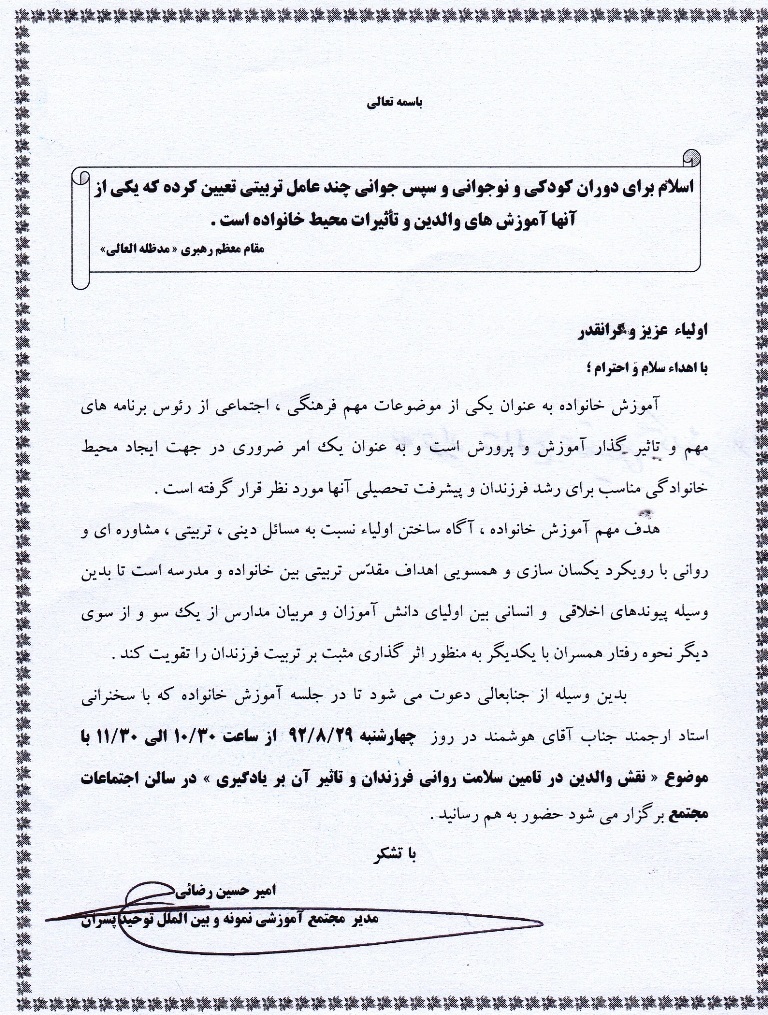 باسمه تعالی
اسلام برای دوران کودکی و نوجوانی و سپس جوانی چند عامل تربیتی تعیین کرده که یکی از
آنها آموزش های والدین و تأثیرات محیط خانواده است .
مقام معظم رهبری « مدظله العالی»
اولیاء عزیز و گرانقدر
با اهداء سلام و احترام ؛
آموزش خانواده به عنوان یکی از موضوعات مهم فرهنگی ، اجتماعی از رئوس برنامه های
مهم و تاثیر گذار آموزش و پرورش است و به عنوان یک امر ضروری در جهت ایجاد محیط
خانوادگی مناسب برای رشد فرزندان و پیشرفت تحصیلی آنها مورد نظر قرار گرفته است .
هدف مهم آموزش خانواده ، آگاه ساختن اولیاء نسبت به مسائل دینی ، تربیتی ، مشاوره ای و
روانی با رویکرد یکسان سازی و همسویی اهداف مقدّس تربیتی بین خانواده و مدرسه است تا بدین
وسیله پیوندهای اخلاقی و انسانی بین اولیای دانش آموزان و مربیان مدارس از یک سو و از سوی
دیگر نحوه رفتار همسران با یکدیگر به منظور اثر گذاری مثبت بر تربیت فرزندان را تقویت کند .
بدین وسیله از جنابعالی دعوت می شود تا در جلسه آموزش خانواده که با سخنرانی
استاد ارجمند جناب آقای هوشمند در روز چهارشنبه ۹۲/۸/۲۹ از ساعت ۱۰/۳۰ الی ۱۱/۳۰ با
موضوع « نقش والدین در تامین سلامت روانی فرزندان و تاثیر آن بر یادگیری » در سالن اجتماعات
مجتمع برگزار می شود حضور به هم رسانید .
با تشکر
امیر حسین رضائی
مدیر مجتمع آموزشی نمونه و بین الملل توحید پسران